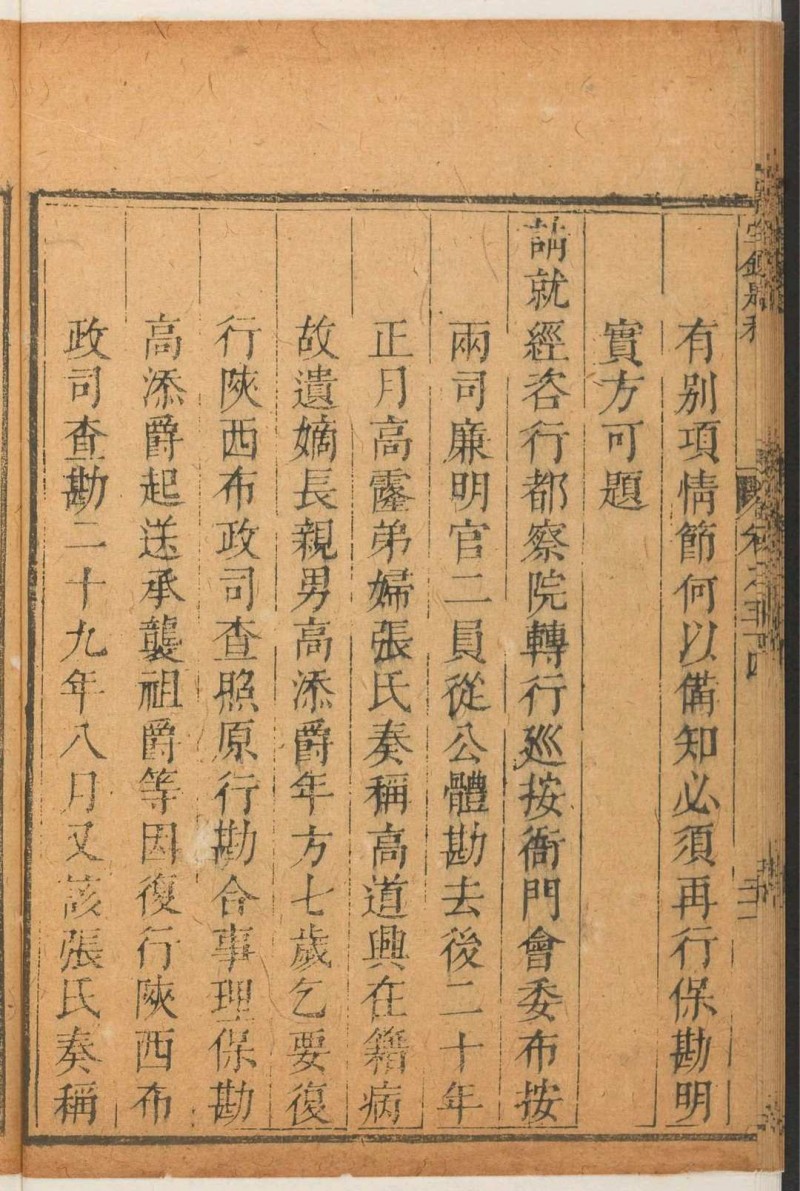 有别項情節何以備知必須再行保勘明
實方可題
請就經咨行都察院轉行廵按衙門會委布按
兩司廉明官二員從公體勘去後二十年
正月高靇弟婦張氏奏稱高道興在籍病
故遺嫡長親男高添爵年方七歲乞要復
行陝西布政司查照原行勘合事理保勘
高添爵起送承襲祖爵等因復行陝西布
政司查勘二十九年八月又該張氏奏稱